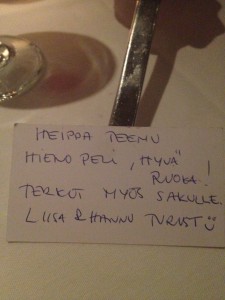 HEIPPA TEEMU
HIENO PELI, HYVÄ
RUOKA!
TERKUT MYÖS SAKULLE.
LIISA & HANNU TURIST☺